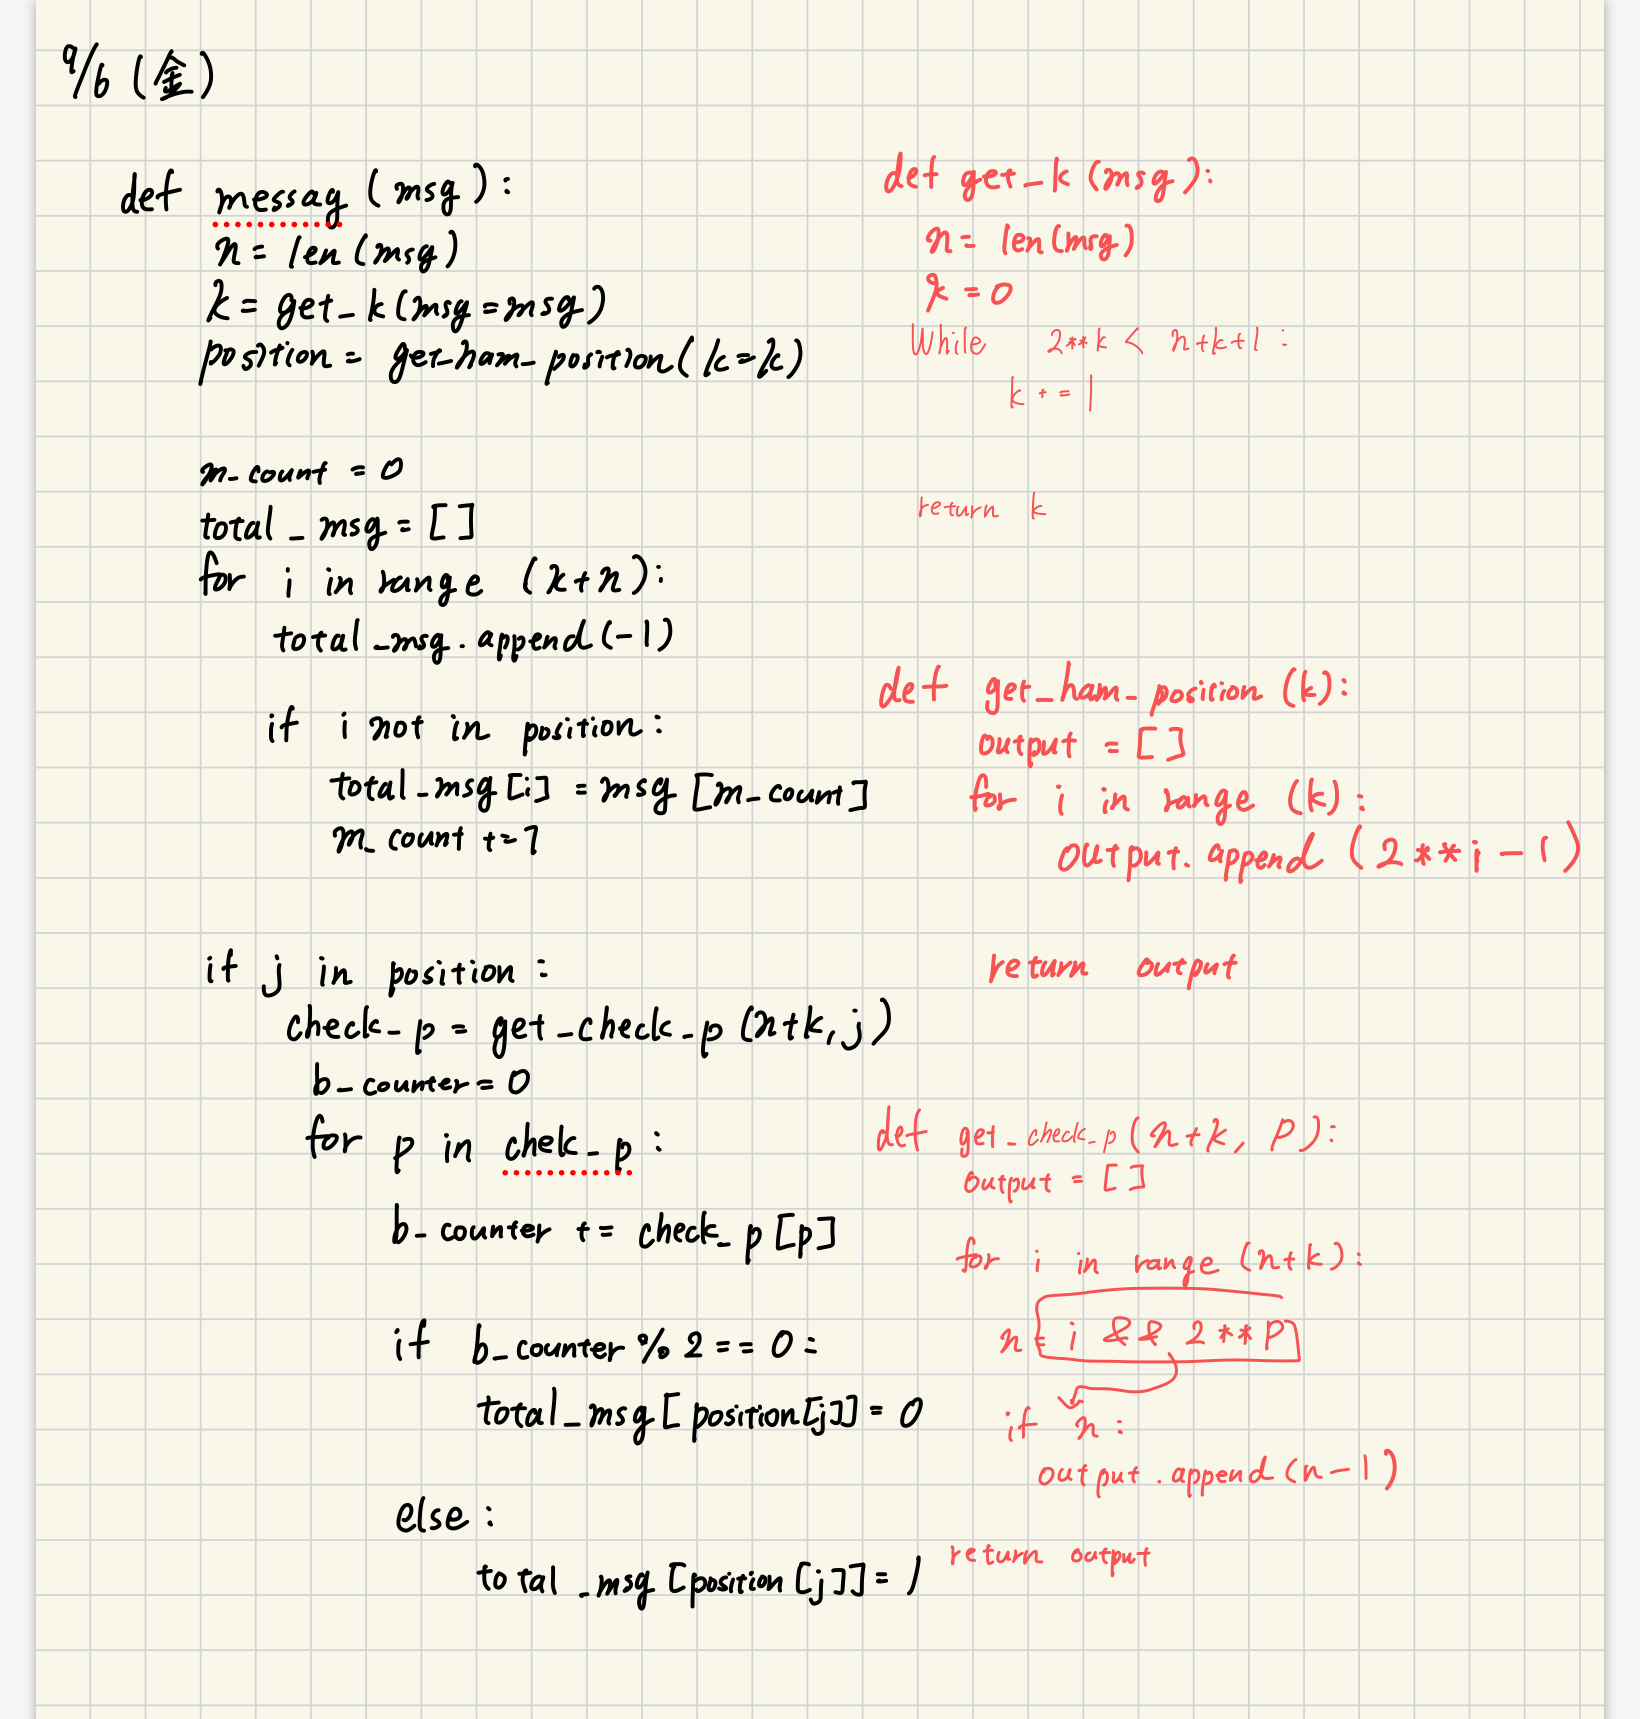 9/6 (金)
def messag (msg):
n = len (msg)
k = get_k (msg=msg)
position = get_ham_position(k=k)
m_count = 0
total_msg = []
for i in range (k+n):
total_msg.append(-1)
if i not in position:
total_msg[i] = msg [m_count]
m_count +=1
if j in position:
check_p = get_check_p (n+k, j)
b_counter = 0
for p in chek_p :
b_counter += check_p [p]
if b_counter % 2 == 0 :
total_msg [position[j]] = 0
else :
total_msg [position [j]] = 1
def get_k (msg):
n = len(msg)
k = 0
While 2**k < n+k+1 :
k += 1
return k
def get_ham_position (k):
output = []
for i in range (k) :
output.append (2**i-1)
return output
def get_check_p (n+k, P):
output = []
for i in range (n+k):
n = i && 2**P
if n :
output.append(n-1)
return output